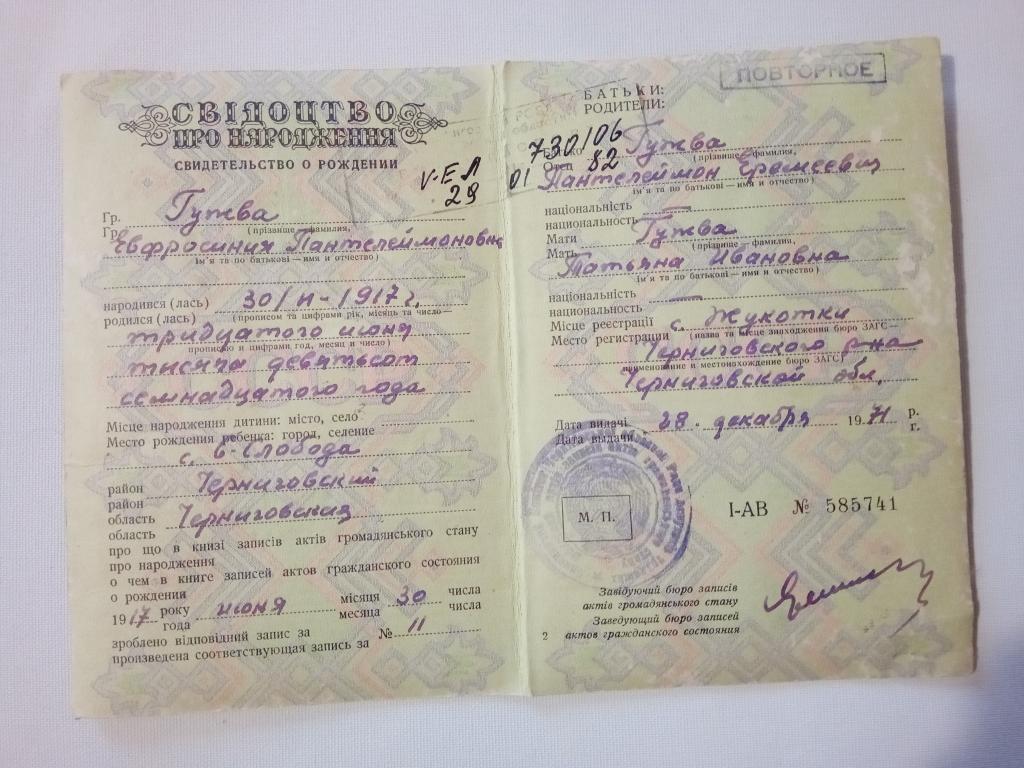 СВІДОЦТВО
ПРО НАРОДЖЕННЯ
СВИДЕТЕЛЬСТВО О РОЖДЕНИИ
V-ЕЛ
29
Гр. Гужва
Гр. (прізвище—фамилия,
Евфросиния Пантелеймоновна
ім'я та по батькові—имя и отчество)
народився (лась) 30/VI-1917 г.
родился (лась) (прописом та цифрами рік, місяць та число—
тридцатого июня
прописью и цифрами год, месяц и число)
тысяча девятьсот
семнадцатого года
Місце народження дитини: місто, село
Место рождения ребенка: город, селение
с. В-Слобода
район Черниговский
район
область Черниговская
область
про що в книзі записів актів громадянського стану
про народження
о чем в книге записей актов гражданского состояния
о рождении
1917 року июня місяця 30 числа
года месяца числа
зроблено відповідний запис за № 11
произведена соответствующая запись за
ПОВТОРНОЕ
БАТЬКИ:
РОДИТЕЛИ:
730/06
01 82
Гужва
(прізвище—фамилия,
Пантелеймон Еремеевич
ім'я та по батькові—имя и отчество)
національність —
национальность
Мати Гужва
Мать (прізвище—фамилия,
Татьяна Ивановна
ім'я та по батькові—имя и отчество)
національність —
национальность
Місце реєстрації с. Жукотки
Место регистрации (назва та місце знаходження бюро ЗАГС—
Черниговского р-на
наименование и местонахождение бюро ЗАГС)
Черниговской обл.
Дата видачі 28 декабря 1971 р.
Дата выдачи г.
М. П.
I-АВ № 585741
Завідуючий бюро записів
актів громадянського стану
Заведующий бюро записей
2 актов гражданского состояния